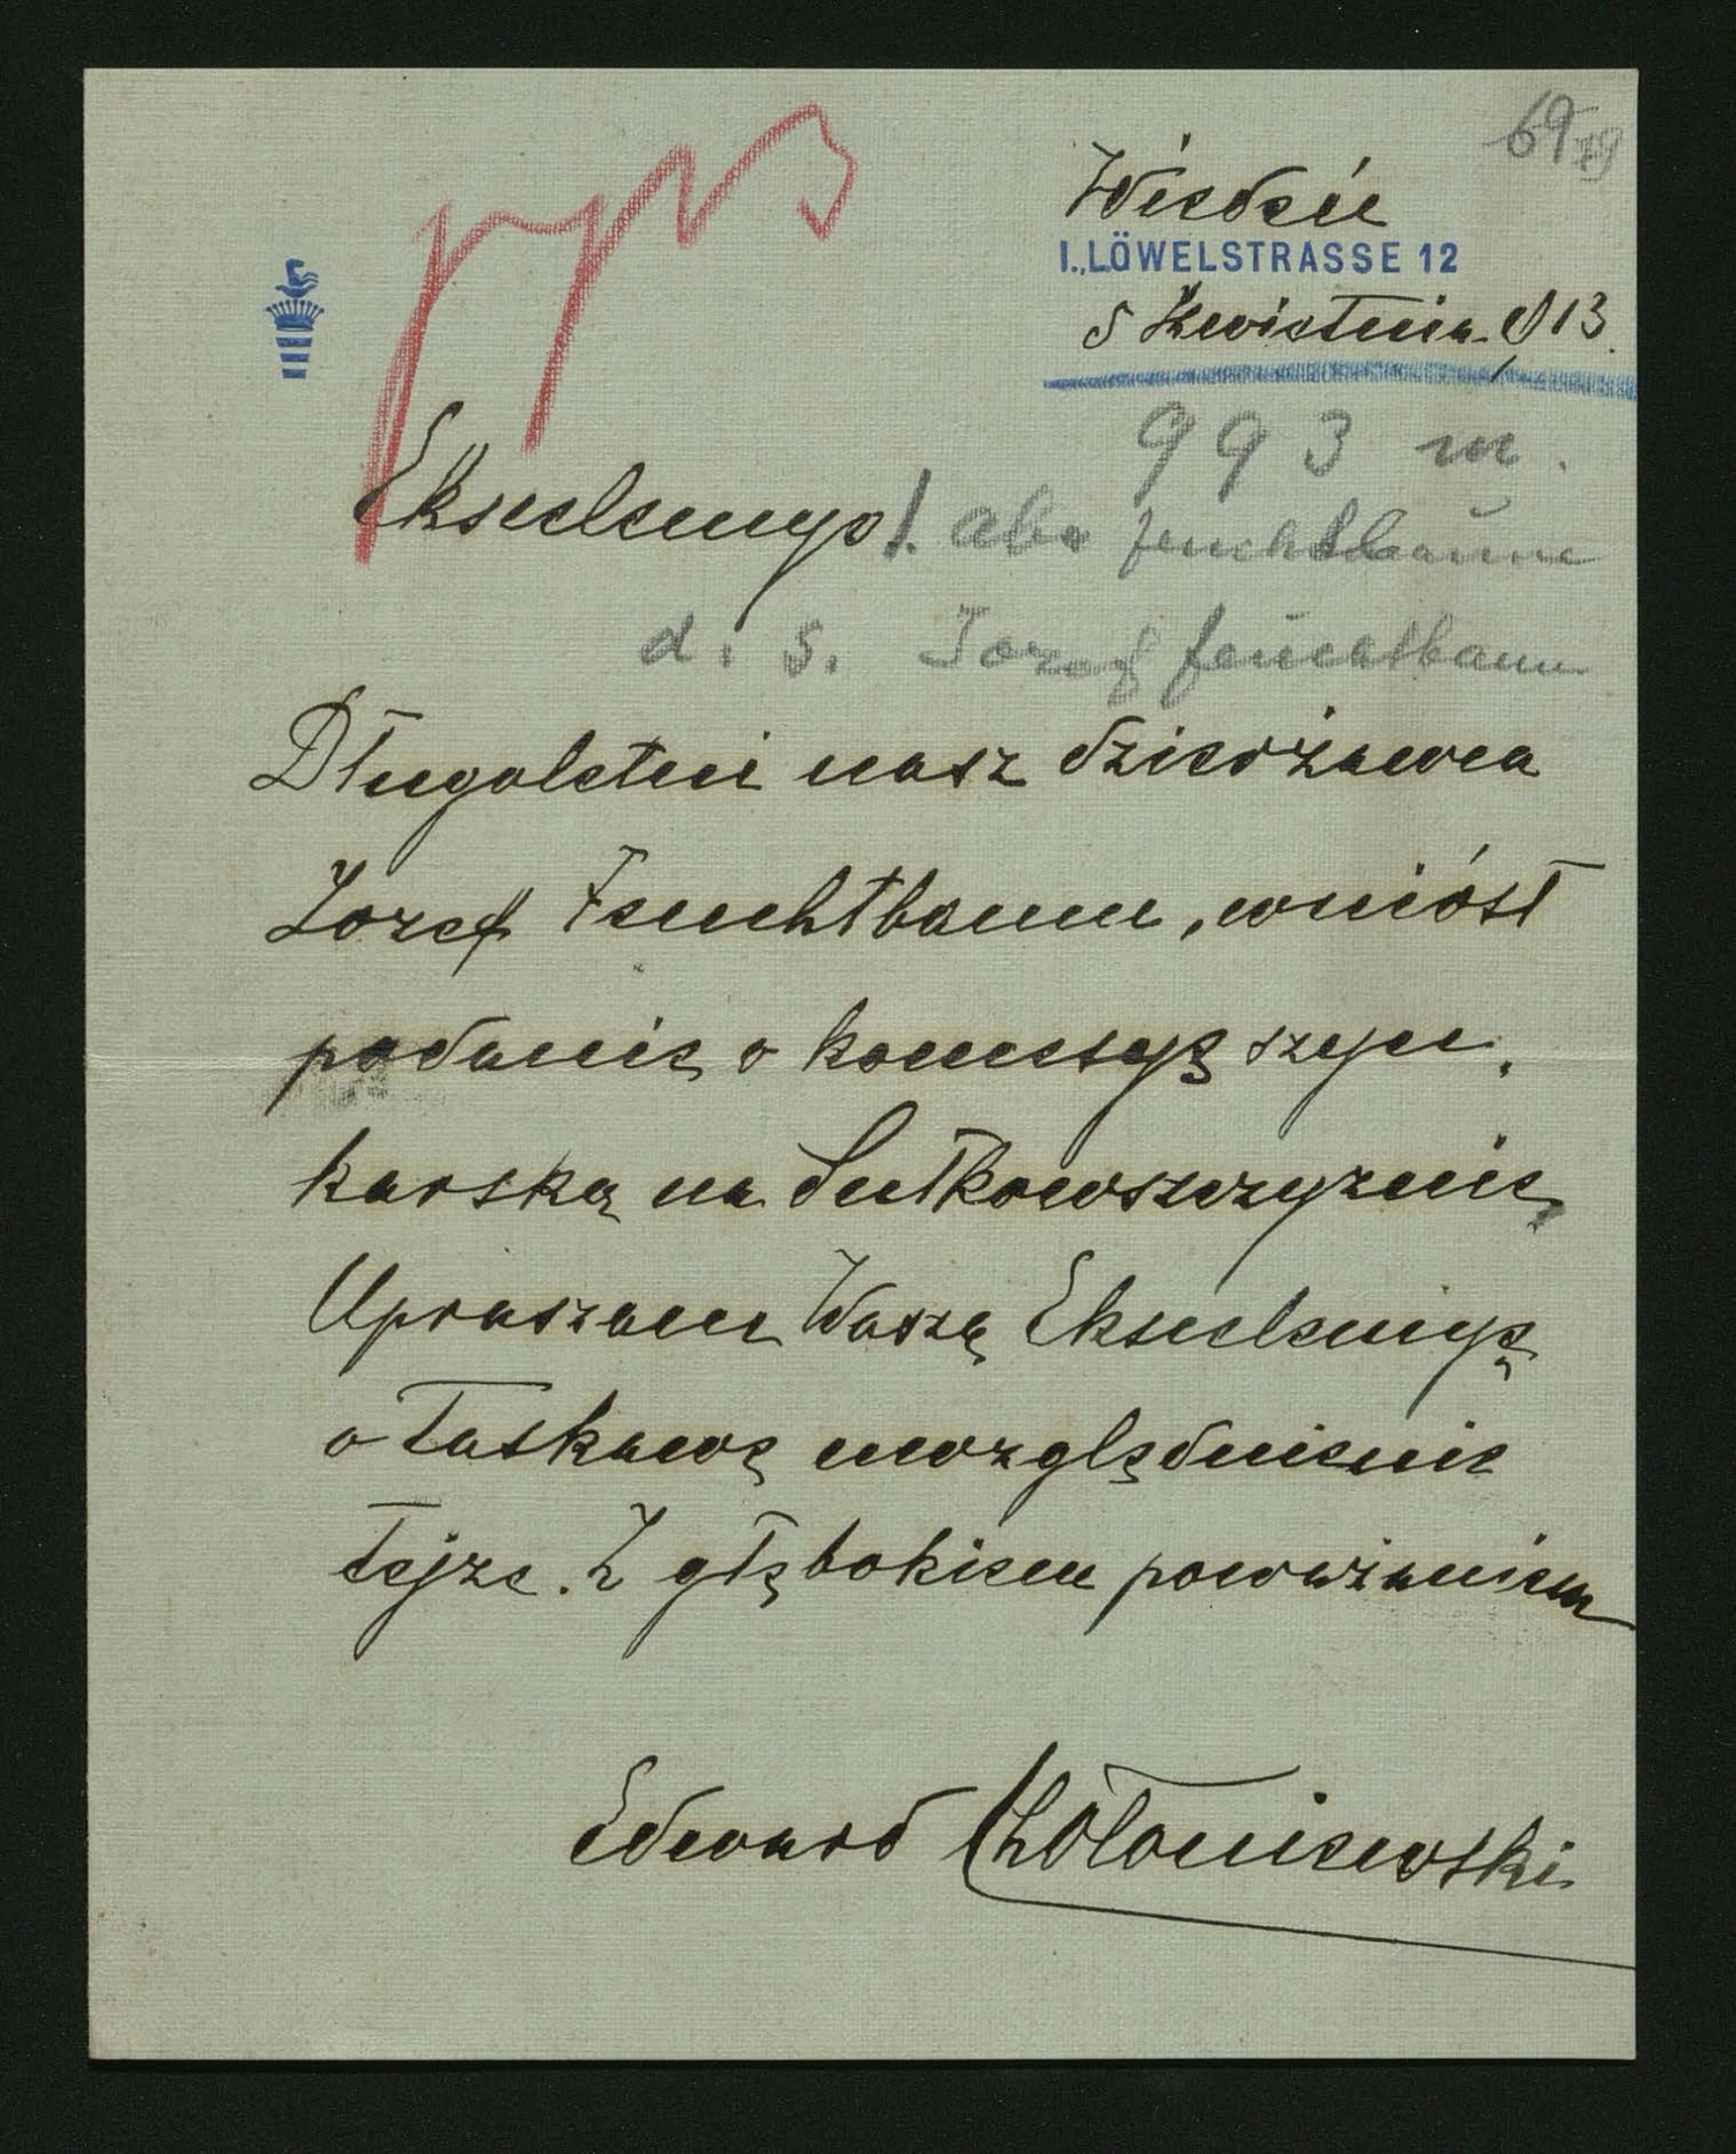 69
Wiedeń
I., LÖWELSTRASSE 12
5 Kwietnia 913.
993 m.
Ekscelencyo!
Feuchtbaum
d. s. Jozef Feuchtbaum
Długoletni nasz dzierżawca
Jozef Feuchtbaum, wniósł
podanie o koncesyę szyn.
karską na Sutkowszczyznie,
Upraszam Waszę Ekscelencyę
o łaskawę uwzględnienie
tejże. Z głębokiem poważaniem
Edward Chołoniewski